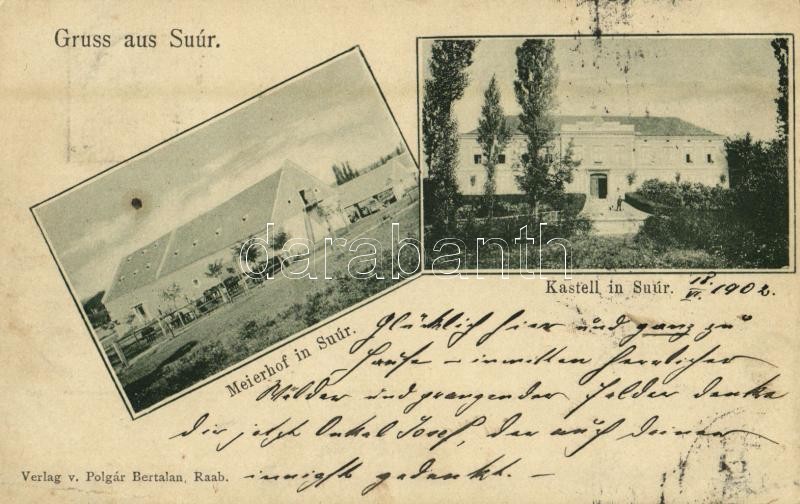 Gruss aus Suúr.
Kastell in Suúr. 18. VI. 1902.
Meierhof in Suúr.
Glücklich hier und ganz zu
Hause – inmitten herrlicher
Wälder und prangender Felder denke
dir jetzt Onkel Josef, der auch deiner
innigst gedenkt. –
Verlag v. Polgár Bertalan, Raab.
darabanth